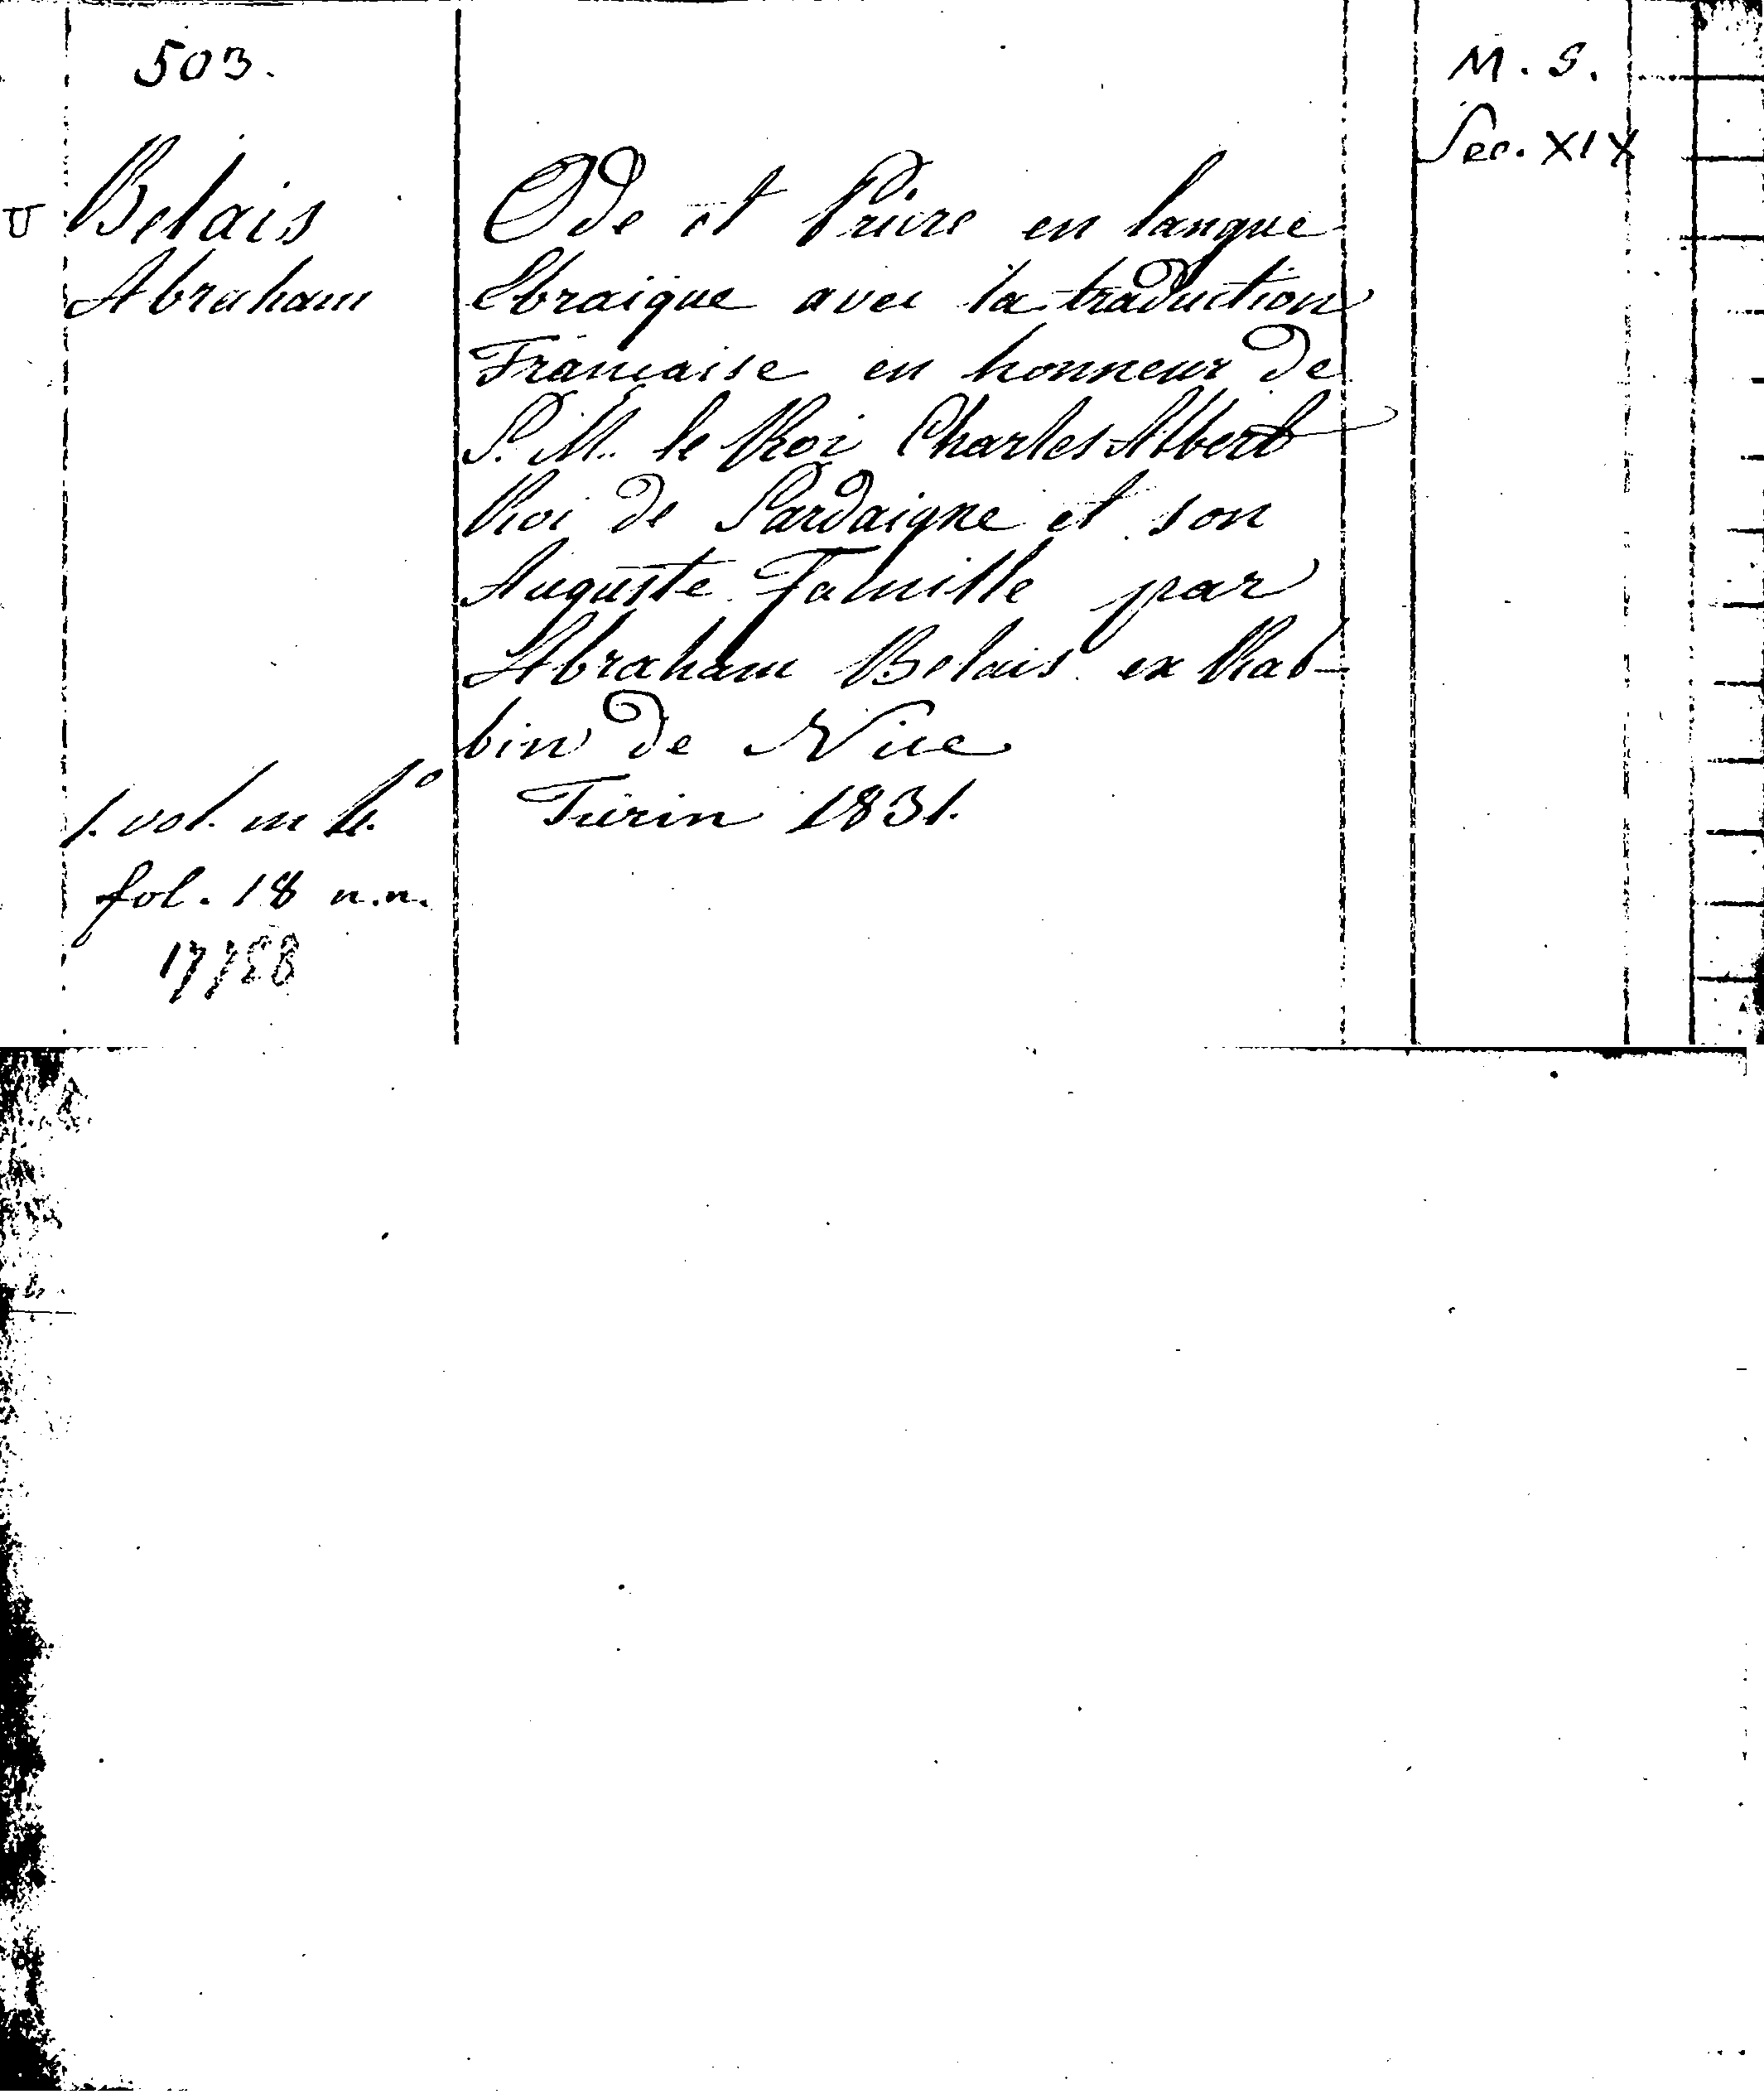 503.
M. S.
Sec. XIX
Belais
Abraham
Ode et Prière en langue
Ebraique avec la traduction
Française en honneur de
S. M. le Roi Charles Albert
Roi de Sardaigne et son
Auguste Famille par
Abraham Belais ex Rab-
bin de Nice
Turin 1831.
1. vol. in 4.°
fol. 18 n.n.